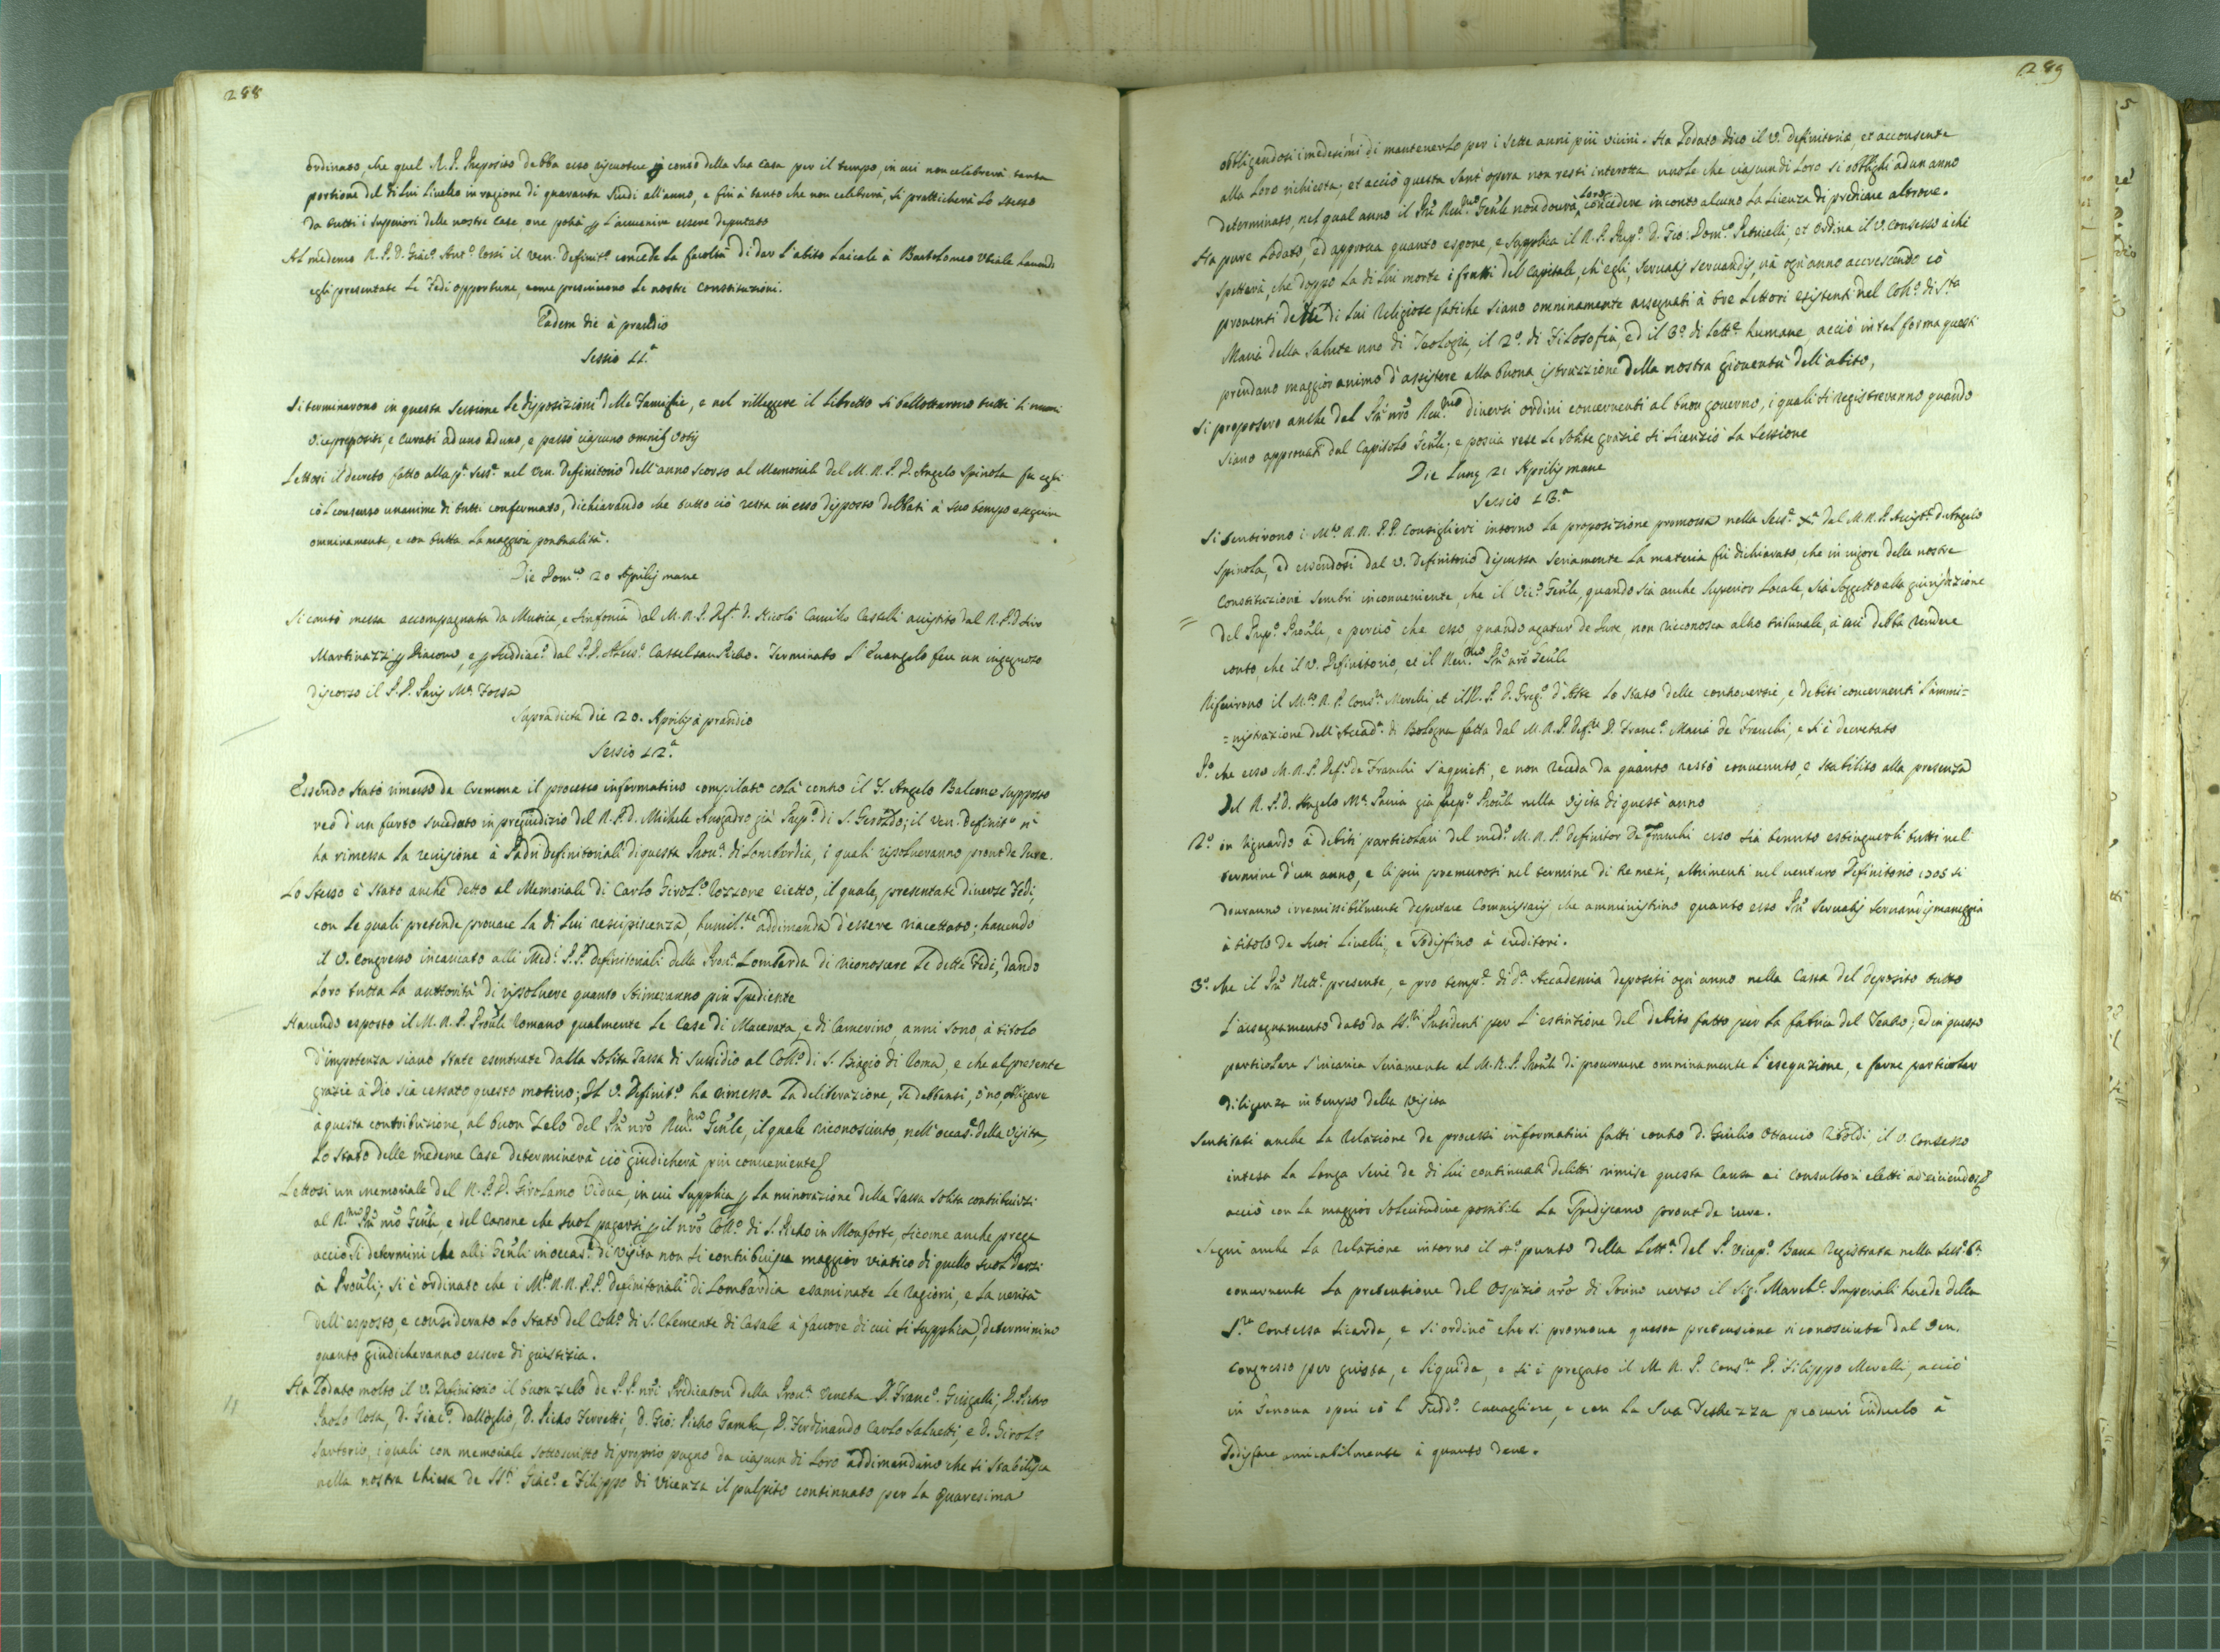 288
ordinato, che quel R. P. Preposito debba esso riscuotere p conto della sua casa per il tempo, in cui non celebrerà tanta
portione del di lui livello in ragione di quaranta scudi all'anno, e fin à tanto che non celebrerà, si pratticherà lo stesso
da tutti i superiori delle nostre case oue potrà p l'auuenire essere deputato
Al medemo R. P. D. Giac.º Ant.º Rossi il ven. Definit.º concede la facoltà di dar l'abito laicale à Bartolomeo Viale hauendo
egli presentate le fedi opportune, come prescriuono le nostre Constituzioni.
Eadem die à prandio
Sessio 11.ª
Si terminarono in questa sessione le disposizioni delle famiglie, e nel rilleggere il libretto si ballottarono tutti li nuoui
Vicepreposti, e Curati ad uno ad uno, e passò ciascuno omnib. votis
Lettosi il decreto fatto alla p.ª sess.e nel Ven. Definitorio dell'anno scorso al Memoriale del M. R. P. D. Angelo Spinola fu egli
cõ l consenso unanime di tutti confermato, dichiarando che tutto ciò resta in esso disposto debbasi à suo tempo eseguire
omninamente, e con tutta la maggior pontualità.
Die Dom.co 20 Aprilis mane
Si cantò messa accompagnata da Musica, e Sinfonia dal M. R. P. Def.r D. Nicolò Camillo Castelli assistito dal R. P. D. Siro
Martinazzi p Diacono, e p suddiac.º dal P. D. Aless.º Castel san Pietro. Terminato l'Euangelo feu un ingegnoso
discorso il P. D. Paris M.ª Fossa
Supradicta die 20. Aprilis à prandio
Sessio 12.ª
Essendo stato rimesso da Cremona il processo informatiuo compilato colà contro il F. Angelo Balcone supposto
reo d'un furto succeduto in pregiudizio del R. P. D. Michele già Prep.º di S. Geroldo; il Ven. Definit.º n'
ha rimessa la reuisione à Padri Definitoriali di questa Prou.ª di Lombardia, i quali risolueranno prout de Iure.
Lo stesso è stato anche detto al Memoriale di Carlo Girol.º Rozzone eietto, il quale, presentate diuerse fedi,
con le quali pretende prouare la di lui rescipiscenza, humil.te addimanda d'essere riaccettato; hauendo
il V. Congresso incaricato alli Med.i P. P. Definitoriali della Prou.ª Lombarda di riconoscere le dette fedi, dando
loro tutta la auttorità di risoluere quanto stimeranno più spediente
Hauendo esposto il M. R. P. Prou̅le Romano qualmente le Case di Macerata, e di Camerino, anni sono, à titolo
d'impotenza siano state esentuate dalla solita Tassa di sussidio al Coll.º di S. Biagio di Roma, e che al presente
grazie à Dio sia cessato questo motiuo; Il V. Definit.º ha rimessa la deliberazione, se debbansi, ò no, obligare
à questa contribuzione, al buon zelo del P̅re nr̅o Reu.mo Gen̅le, il quale riconosciuto, nell'occas.e della visita,
lo stato delle medeme Case determinerà ciò giudicherà più conueniente
Lettosi un memoriale del R. P. D. Girolamo Vidue, in cui supplica p la minorazione della Tassa solita contribuirsi
al R.mo P̅re nr̅o Gen̅le, e del Canone che suol pagarsi p il nr̅o Coll.º di S. Pietro in Monforte, sicome anche prega
acciò si determini che alli Gen̅li in occas.e di visita non si contribuisca maggior viatico di quello suol darsi
à Prou̅li; si è ordinato che i M.to R. R. P. P. Definitoriali di Lombardia esaminate le ragioni, e la verità
dell'esposto, e considerato lo stato del Coll.º di S. Clemente di Casale à fauore di cui si supplica, determinino
quanto giudicheranno essere di giustizia.
Ha lodato molto il V. Definitorio il buon zelo de P. P. nr̅i Predicatori della Prou.ª Veneta D. Franc.º Grigalli, D. Pietro
Paolo Rosa, D. Giac.º dall'oglio, D. Pietro Ferretti, D. Gio: Pietro Gamba, D. Ferdinando Carlo Saluetti, e D. Girol.º
Sartorio, i quali con memoriale sottoscritto di proprio pugno da ciascun di loro addimandano che si stabilisca
nella nostra Chiesa de SS.ti Giac.º e Filippo di Vicenza il pulpito continuato per la Quaresima
289
obbligandosi i medesimi di mantenerlo per i sette anni più vicini. Ha lodato dico il V. Definitorio, et acconsente
alla loro richiesta; et acciò questa sant'opera non resti interotta vuole che ciascun di loro si obblighi ad un anno
determinato, nel qual anno il P̅re Reu.mo Gen̅le non dourà loro concedere in conto alcuno la licenza di predicare altroue.
Ha pure lodato, ed approua quanto espone, e supplica il R. P. Prep.º D. Gio: Dom.co Petricelli, et ordina il V. Consesso à chi
spetterà, che doppo la di lui morte i frutti del capitale, ch'egli, seruatis seruandis, và ogn'anno accrescendo cõ
prouenti delle di lui religiose fatiche siano omninamente assegnati à tre Lettori esistenti nel Coll.º di S.ta
Maria della Salute uno di Teologia, il 2.º di Filosofia, ed il 3.º di Lett.e humane, acciò in tal forma questi
prendano maggior animo d'assistere alla buona istruzzione della nostra giouentù dell'abito,
Si proposero anche dal P̅re nr̅o Reu.mo diuersi ordini concernenti al buon gouerno, i quali si registreranno quando
siano approuati dal Capitolo Gen̅le; e poscia rese le solite grazie si licenziò la Sessione
Die Lunę 21 Aprilis mane
Sessio 13.ª
Si sentirono i M.to R. R. P. P. Consiglieri intorno la proposizione promossa nella Sess.e X.ª dal M. R. P. Assist.e D. Angelo
Spinola, ed essendosi dal V. Definitorio discussa seriamente la materia fù dichiarato, che in vigore delle nostre
Constituzioni sembri inconueniente, che il Vic.º Gen̅le, quando sia anche Superior Locale, sia soggetto alla giurisdizione
= del Prep.º Prou̅le, e perciò che esso, quando agatur de Iure, non riconosca altro tribunale, à cui debba rendere
conto, che il V. Definitorio, et il Reu.mo P̅re nr̅o Gen̅le
Riferirono il M.to R. P. Cons.re Merelli, et il R. P. D. Greg.º d'Aste lo stato delle controuersie, e debiti concernenti l'ammi=
=nistrazione dell'Accad.ª di Bologna fatta dal M. R. P. Def.re D. Franc.º Maria de Franchi, e si è decretato
P.º che esso M. R. P. Def.r de Franchi s'aquieti, e non receda da quanto restò conuenuto, e stabilito alla presenza
del R. P. D. Angelo M.ª Pauia già Prep.º Prou̅le nella visita di quest'anno
2.º in riguardo à debiti particolari del med.º M. R. P. Definitor De Franchi esso sia tenuto estinguerli tutti nel
termine d'un anno, e li più premurosi nel termine di tre mesi, altrimenti nel venturo Definitorio 1705 si
douranno irremissibilmente deputare Commissarij che amministrino quanto esso P̅re seruatis seruandis maneggia
à titolo de suoi liuelli, e sodisfino à creditori.
3.º che il P̅re Rett.e presente, e pro temp.e di d.ª Accademia depositi ogn'anno nella Cassa del deposito tutto
l'assegnamento dato da SS.ri Presidenti per l'estintione del debito fatto per la fabrica del Teatro; ed in questo
particolare s'incarica seriamente al M. R. P. Prou̅le di procurarne omninamente l'esequzione, e farne particolar
diligenza in tempo della visita
Sentitasi anche la relazione de processi informatiui fatti contro D. Giulio Ottauio il V. Consesso
intesa la longa serie de di lui continuati delitti rimise questa causa ai Consultori eletti ad eiiciendos
acciò con la maggior solecitudine possibile la spediscano prout de iure.
Seguì anche la relazione intorno il 4.º punto della Lett.ª del P. Vicep.º Baua registrata nella sess.e 6.ª
concernente la pretensione del Ospizio nr̅o di verso il Sig.r March.e Imperiali herede della
S.ra Contessa Sicarda, e si ordinò che si promoua questa pretensione riconosciuta dal Ven.
Congresso per giusta, e liquida, e si è pregato il M. R. P. Cons.re D. Filippo Merelli, acciò
in Genoua operi cõ l sudd.º Caualiere, e con la sua destrezza procuri indurlo à
sodisfare amicabilmente à quanto deue.